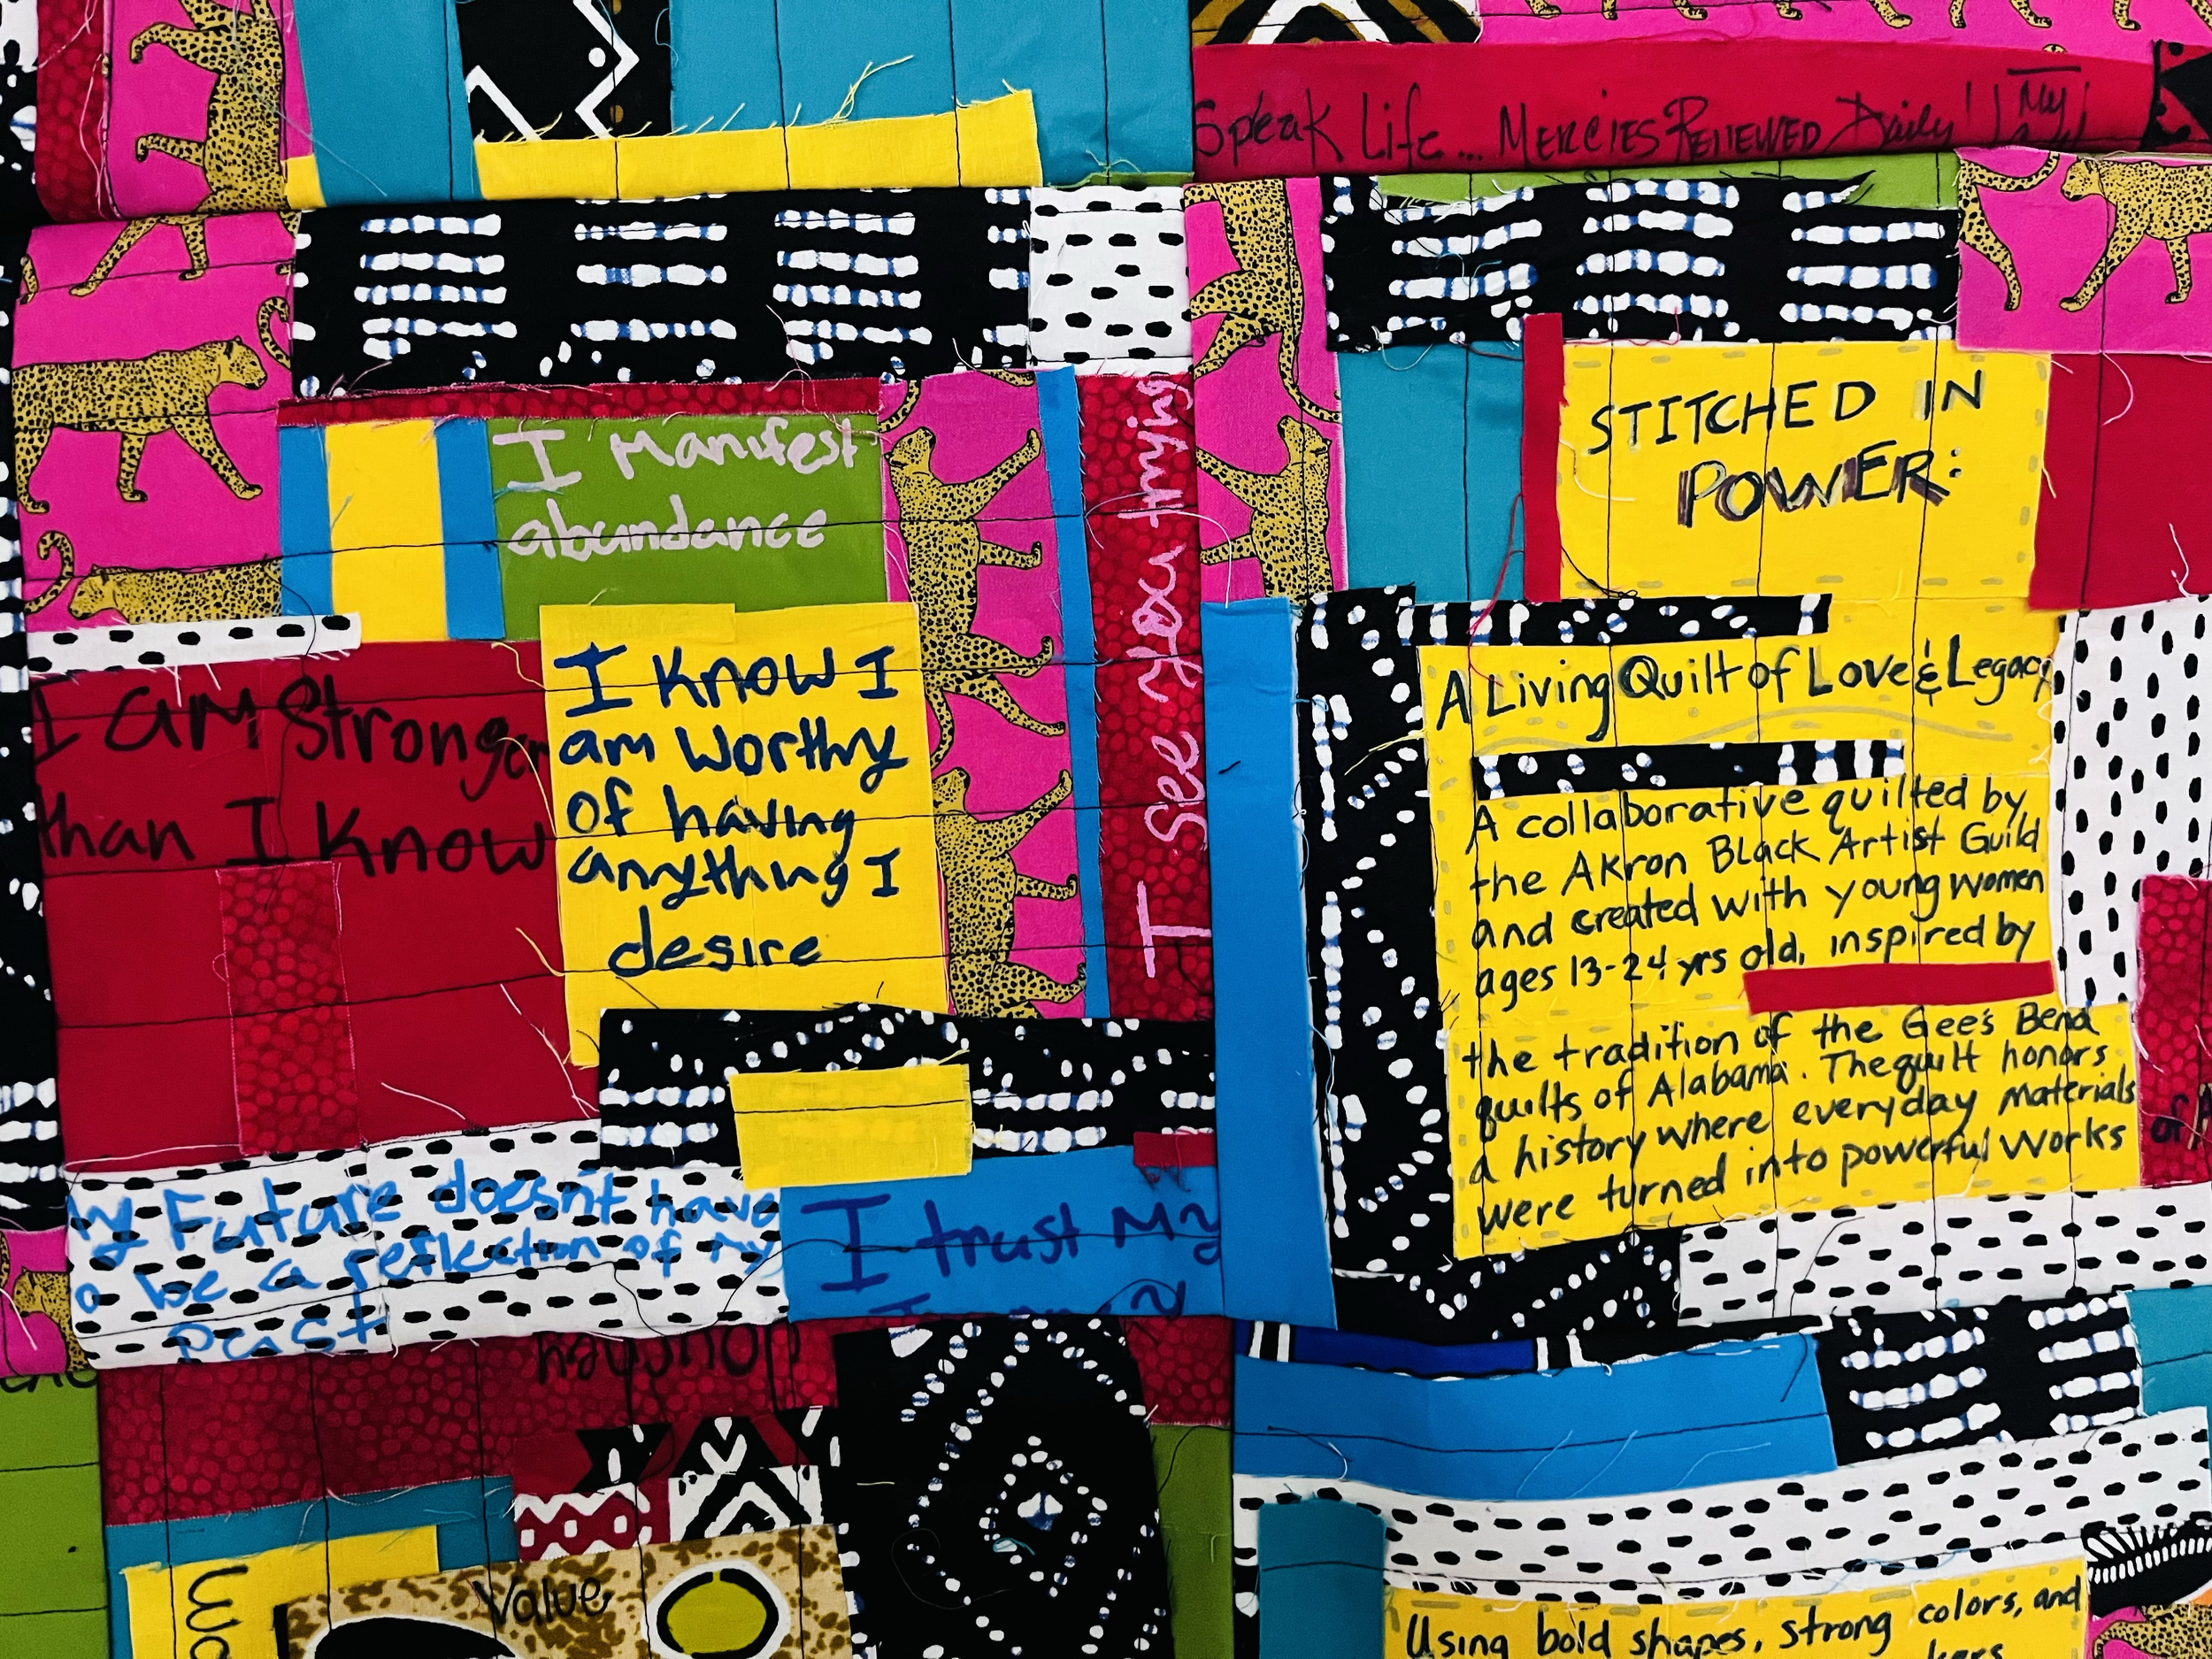 Speak Life... Mercies Renewed Daily!
My
I Manifest
abundance
I see you trying
I am Stronger
than I know
I know I
am worthy
of having
anything I
desire
My Future doesn't have
to be a reflection of my
past
I trust My
STITCHED IN
POWER:
A Living Quilt of Love & Legacy
A collaborative quilted by
the Akron Black Artist Guild
and created with young women
ages 13-24 yrs old, inspired by
the tradition of the Gee's Bend
quilts of Alabama. The quilt honors
a history where everyday materials
were turned into powerful works
Value
Using bold shapes, strong colors, and